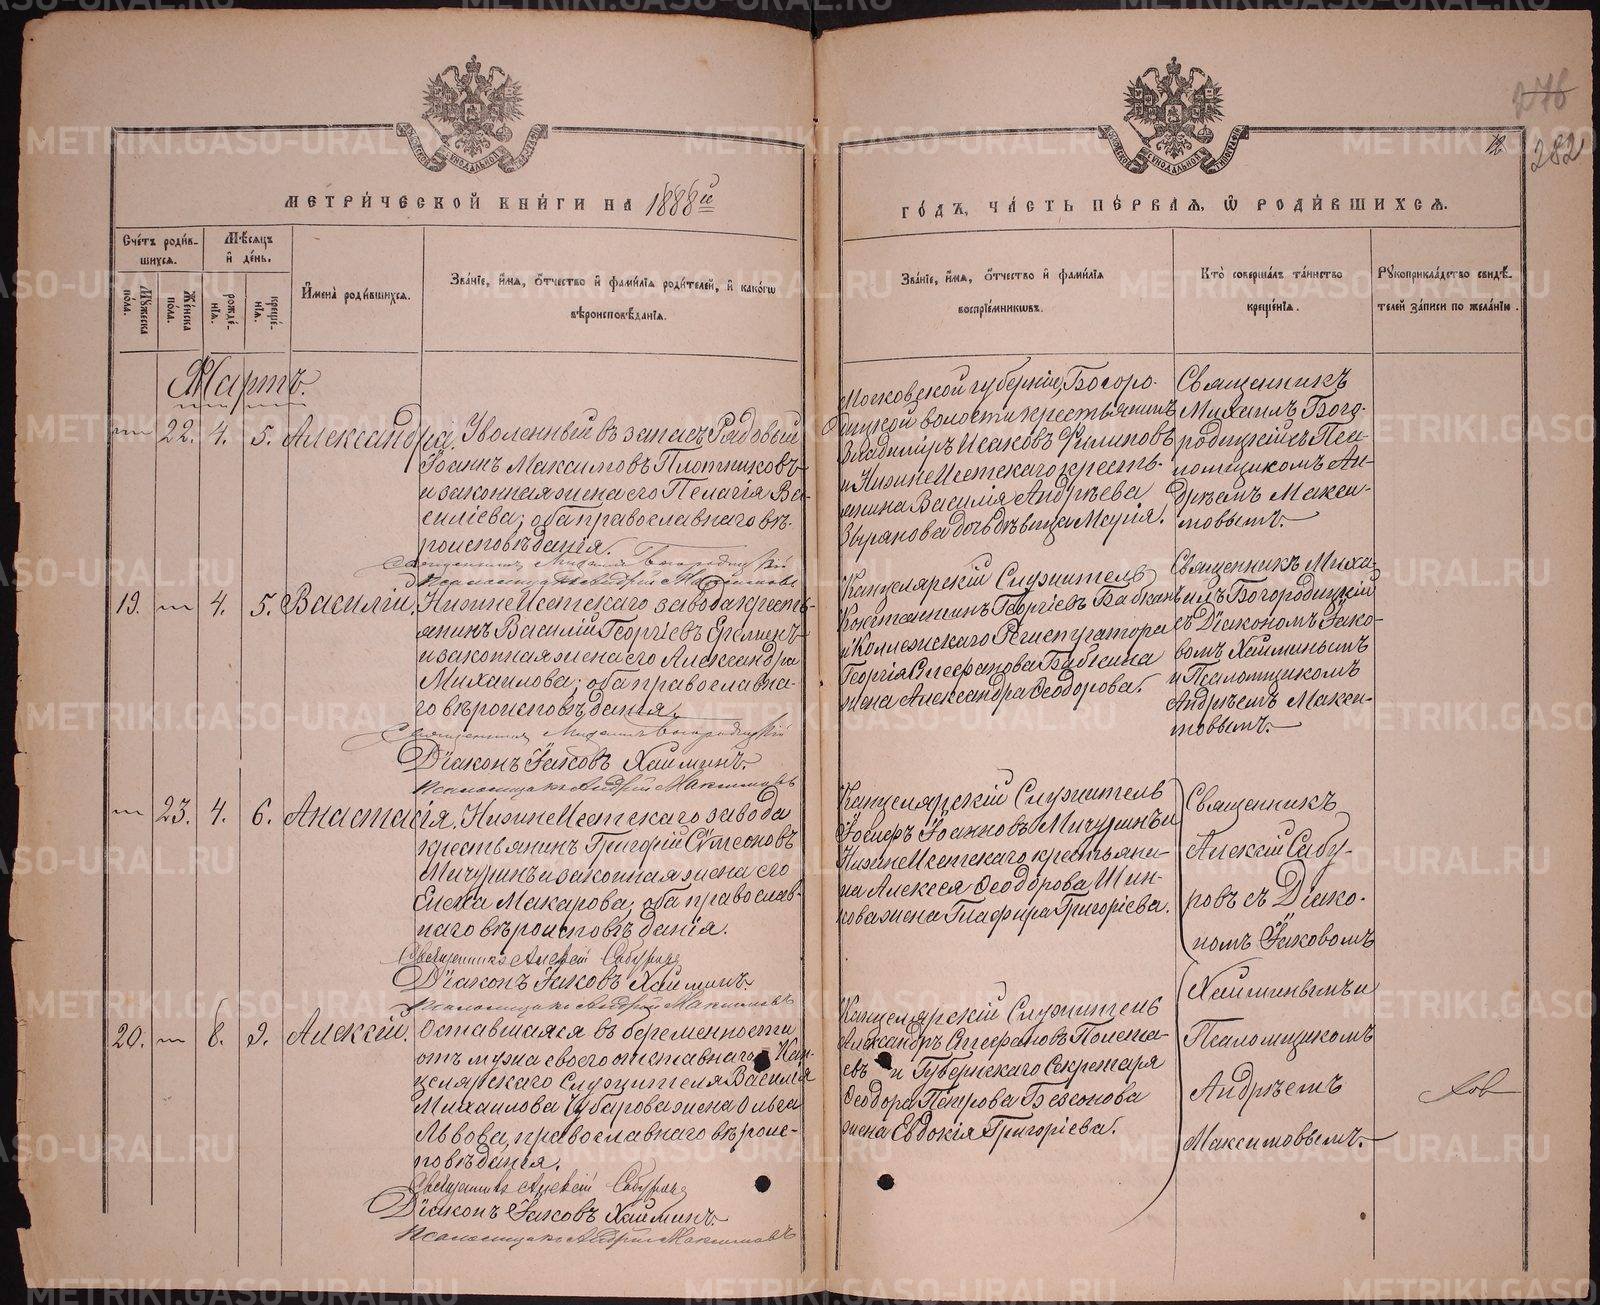 МЕТРИ́ЧЕСКОЙ КНИ́ГИ НА 1888й
ГО́ДЪ, ЧА́СТЬ ПЕ́РВАѦ, Ѡ РОДИ́ВШИХСѦ.
12
282
Сче́тъ роди́в-
шихся.
Мѣ́сяцъ
и де́нь.
Му́жеска
по́ла.
Же́нска
по́ла.
рожде́-
нія.
креще́-
нія.
Имена̀ роди́вшихся.
Зва́ніе, и́мя, о́тчество и фами́лія роди́телей, и како́гѡ
вѣроисповѣ́данія.
Зва́ніе, и́мя, о́тчество и фами́лія
воспріе́мникѡвъ.
Кто̀ соверша́лъ та́инство
креще́нія.
Рꙋкоприкла́дство свидѣ́-
телей за́писи по жела́нію.
Мартъ.
22. 4. 5. Александра. Уволенный въ запасъ Рядовый
Іоаннъ Максимовъ Плотниковъ
и законная жена его Пелагія Ва-
силіева; оба православнаго вѣ-
роисповѣданія.
Священникъ Михаилъ Богородицкій
Псаломщикъ Андрей Максимовъ
Московской губерніи, Богоро-
дицкой волости крестьянинъ
Владиміръ Исаковъ Филиповъ
и НижнеИсетскаго кресть-
янина Василія Андрѣева
Зырянова дочь дѣвица Марія.
Священникъ
Михаилъ Бого-
родицкій съ Пса-
ломщикомъ Ан-
дрѣемъ Макси-
мовымъ.
19. 4. 5. Василій. НижнеИсетскаго завода кресть-
янинъ Василій Георгіевъ Ереминъ
и законная жена его Александра
Михаилова; оба православна-
го вѣроисповѣданія.
Священникъ Михаилъ Богородицкій
Діаконъ Іаковъ Хайминъ.
Псаломщикъ Андрей Максимовъ
Канцелярскій Служитель
Константинъ Георгіевъ Бабкинъ
и Коллежскаго Регистратора
Георгія Стефанова Бабкина
жена Александра Ѳеодорова.
Священникъ Миха-
илъ Богородицкій
съ Діакономъ Іако-
вомъ Хайминымъ
и Псаломщикомъ
Андрѣемъ Макси-
мовымъ.
23. 4. 6. Анастасія. НижнеИсетскаго завода
крестьянинъ Григорій Сѵмеоновъ
Мичуринъ и законная жена его
Екаѳ Макарова; оба православ-
наго вѣроисповѣданія.
Священникъ Алексій Сабуровъ
Діаконъ Іаковъ Хайминъ.
Псаломщикъ Андрей Максимовъ
Канцелярскій Служитель
Іосифъ Іоанновъ Мичуринъ и
НижнеИсетскаго крестьяни-
на Алексея Ѳеодорова Шин-
кова жена Глафира Григоріева.
Священникъ
Алексій Сабу-
ровъ съ Діако-
номъ Іаковомъ
Хайминымъ и
Псаломщикомъ
Андрѣемъ
Максимовымъ.
20. 8. 9. Алексій. Оставшаяся въ беременности
отъ мужа своего отставнаго Кан-
целярскаго Служителя Василія
Михаилова Чубарова жена Ольга
Львова, православнаго вѣроис-
повѣданія.
Священникъ Алексій Сабуровъ
Діаконъ Іаковъ Хайминъ.
Псаломщикъ Андрей Максимовъ
Канцелярскій Служитель
Александръ Стефановъ Полета-
евъ и Губернскаго Секретаря
Ѳеодора Петрова Безсонова
жена Евдокія Григоріева.
METRIKI.GASO-URAL.RU